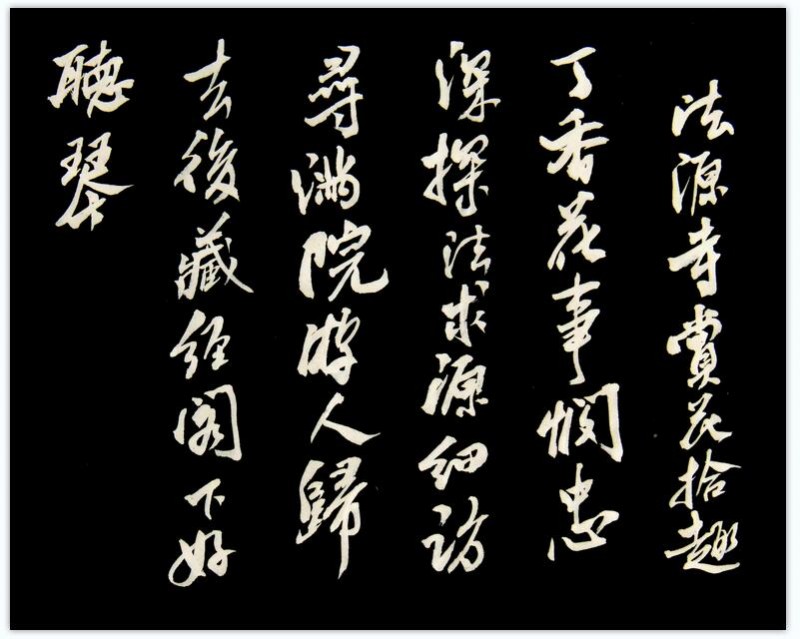 法源寺賞花拾趣
丁香花事憫忠
深探法求源細訪
尋滿院游人歸
去後藏經閣下好
聽琴